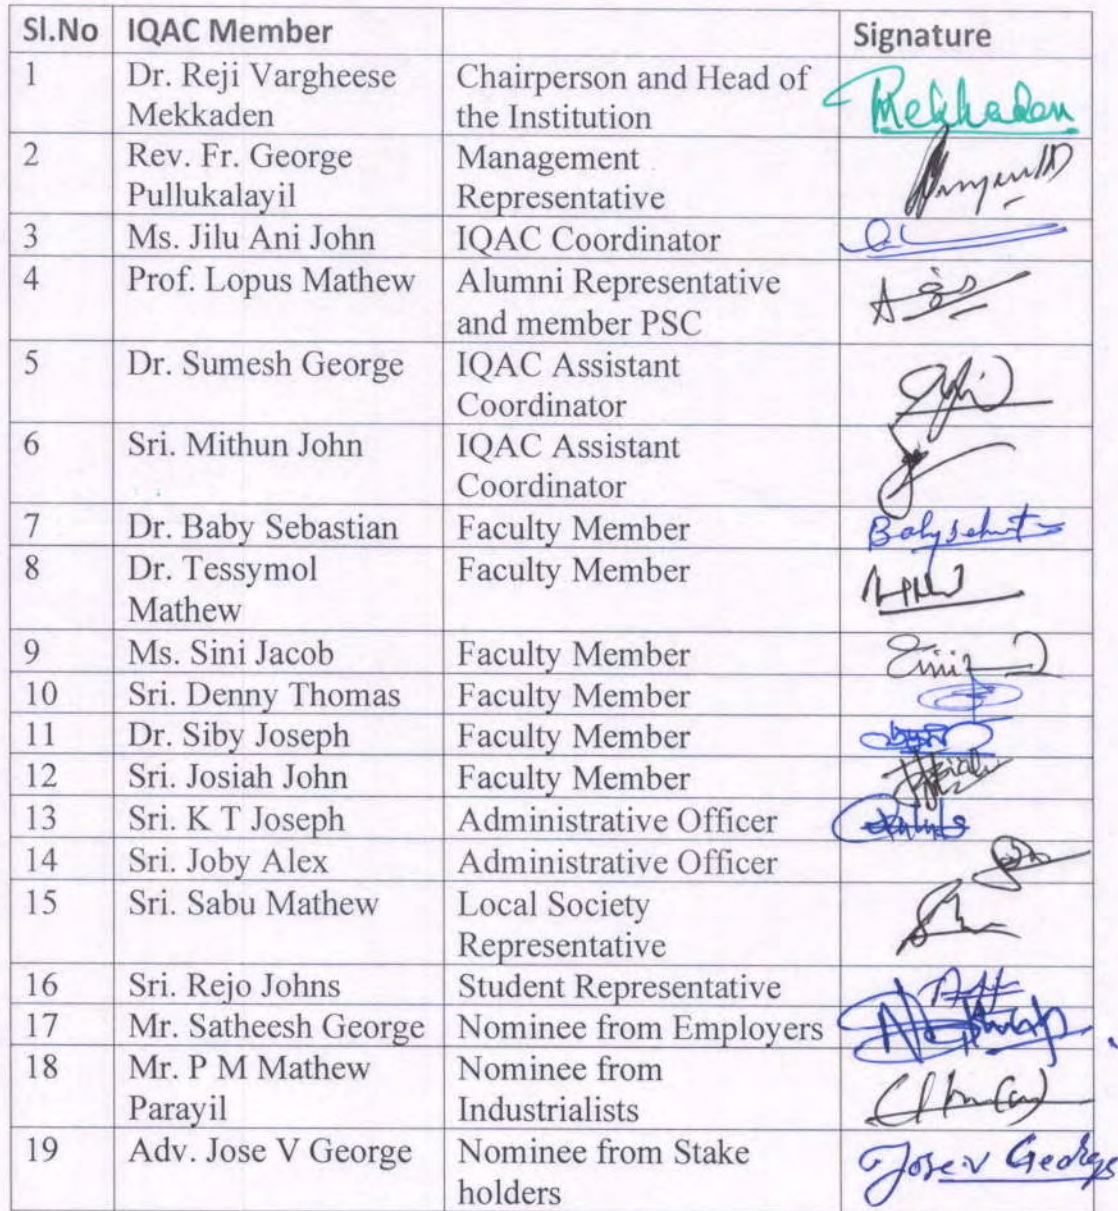 Sl.No IQAC Member Signature
1 Dr. Reji Vargheese Chairperson and Head of
Mekkaden the Institution Mekkaden
2 Rev. Fr. George Management
Pullukalayil Representative
3 Ms. Jilu Ani John IQAC Coordinator
4 Prof. Lopus Mathew Alumni Representative
and member PSC
5 Dr. Sumesh George IQAC Assistant
Coordinator
6 Sri. Mithun John IQAC Assistant
Coordinator
7 Dr. Baby Sebastian Faculty Member
8 Dr. Tessymol Faculty Member
Mathew
9 Ms. Sini Jacob Faculty Member
10 Sri. Denny Thomas Faculty Member
11 Dr. Siby Joseph Faculty Member
12 Sri. Josiah John Faculty Member
13 Sri. K T Joseph Administrative Officer
14 Sri. Joby Alex Administrative Officer
15 Sri. Sabu Mathew Local Society
Representative
16 Sri. Rejo Johns Student Representative
17 Mr. Satheesh George Nominee from Employers
18 Mr. P M Mathew Nominee from
Parayil Industrialists
19 Adv. Jose V George Nominee from Stake Jose V George
holders